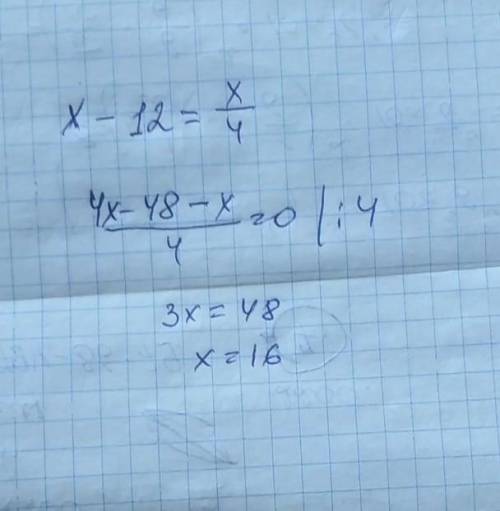 x - 12 = x/4
(4x - 48 - x)/4 = 0 | : 4
3x = 48
x = 16